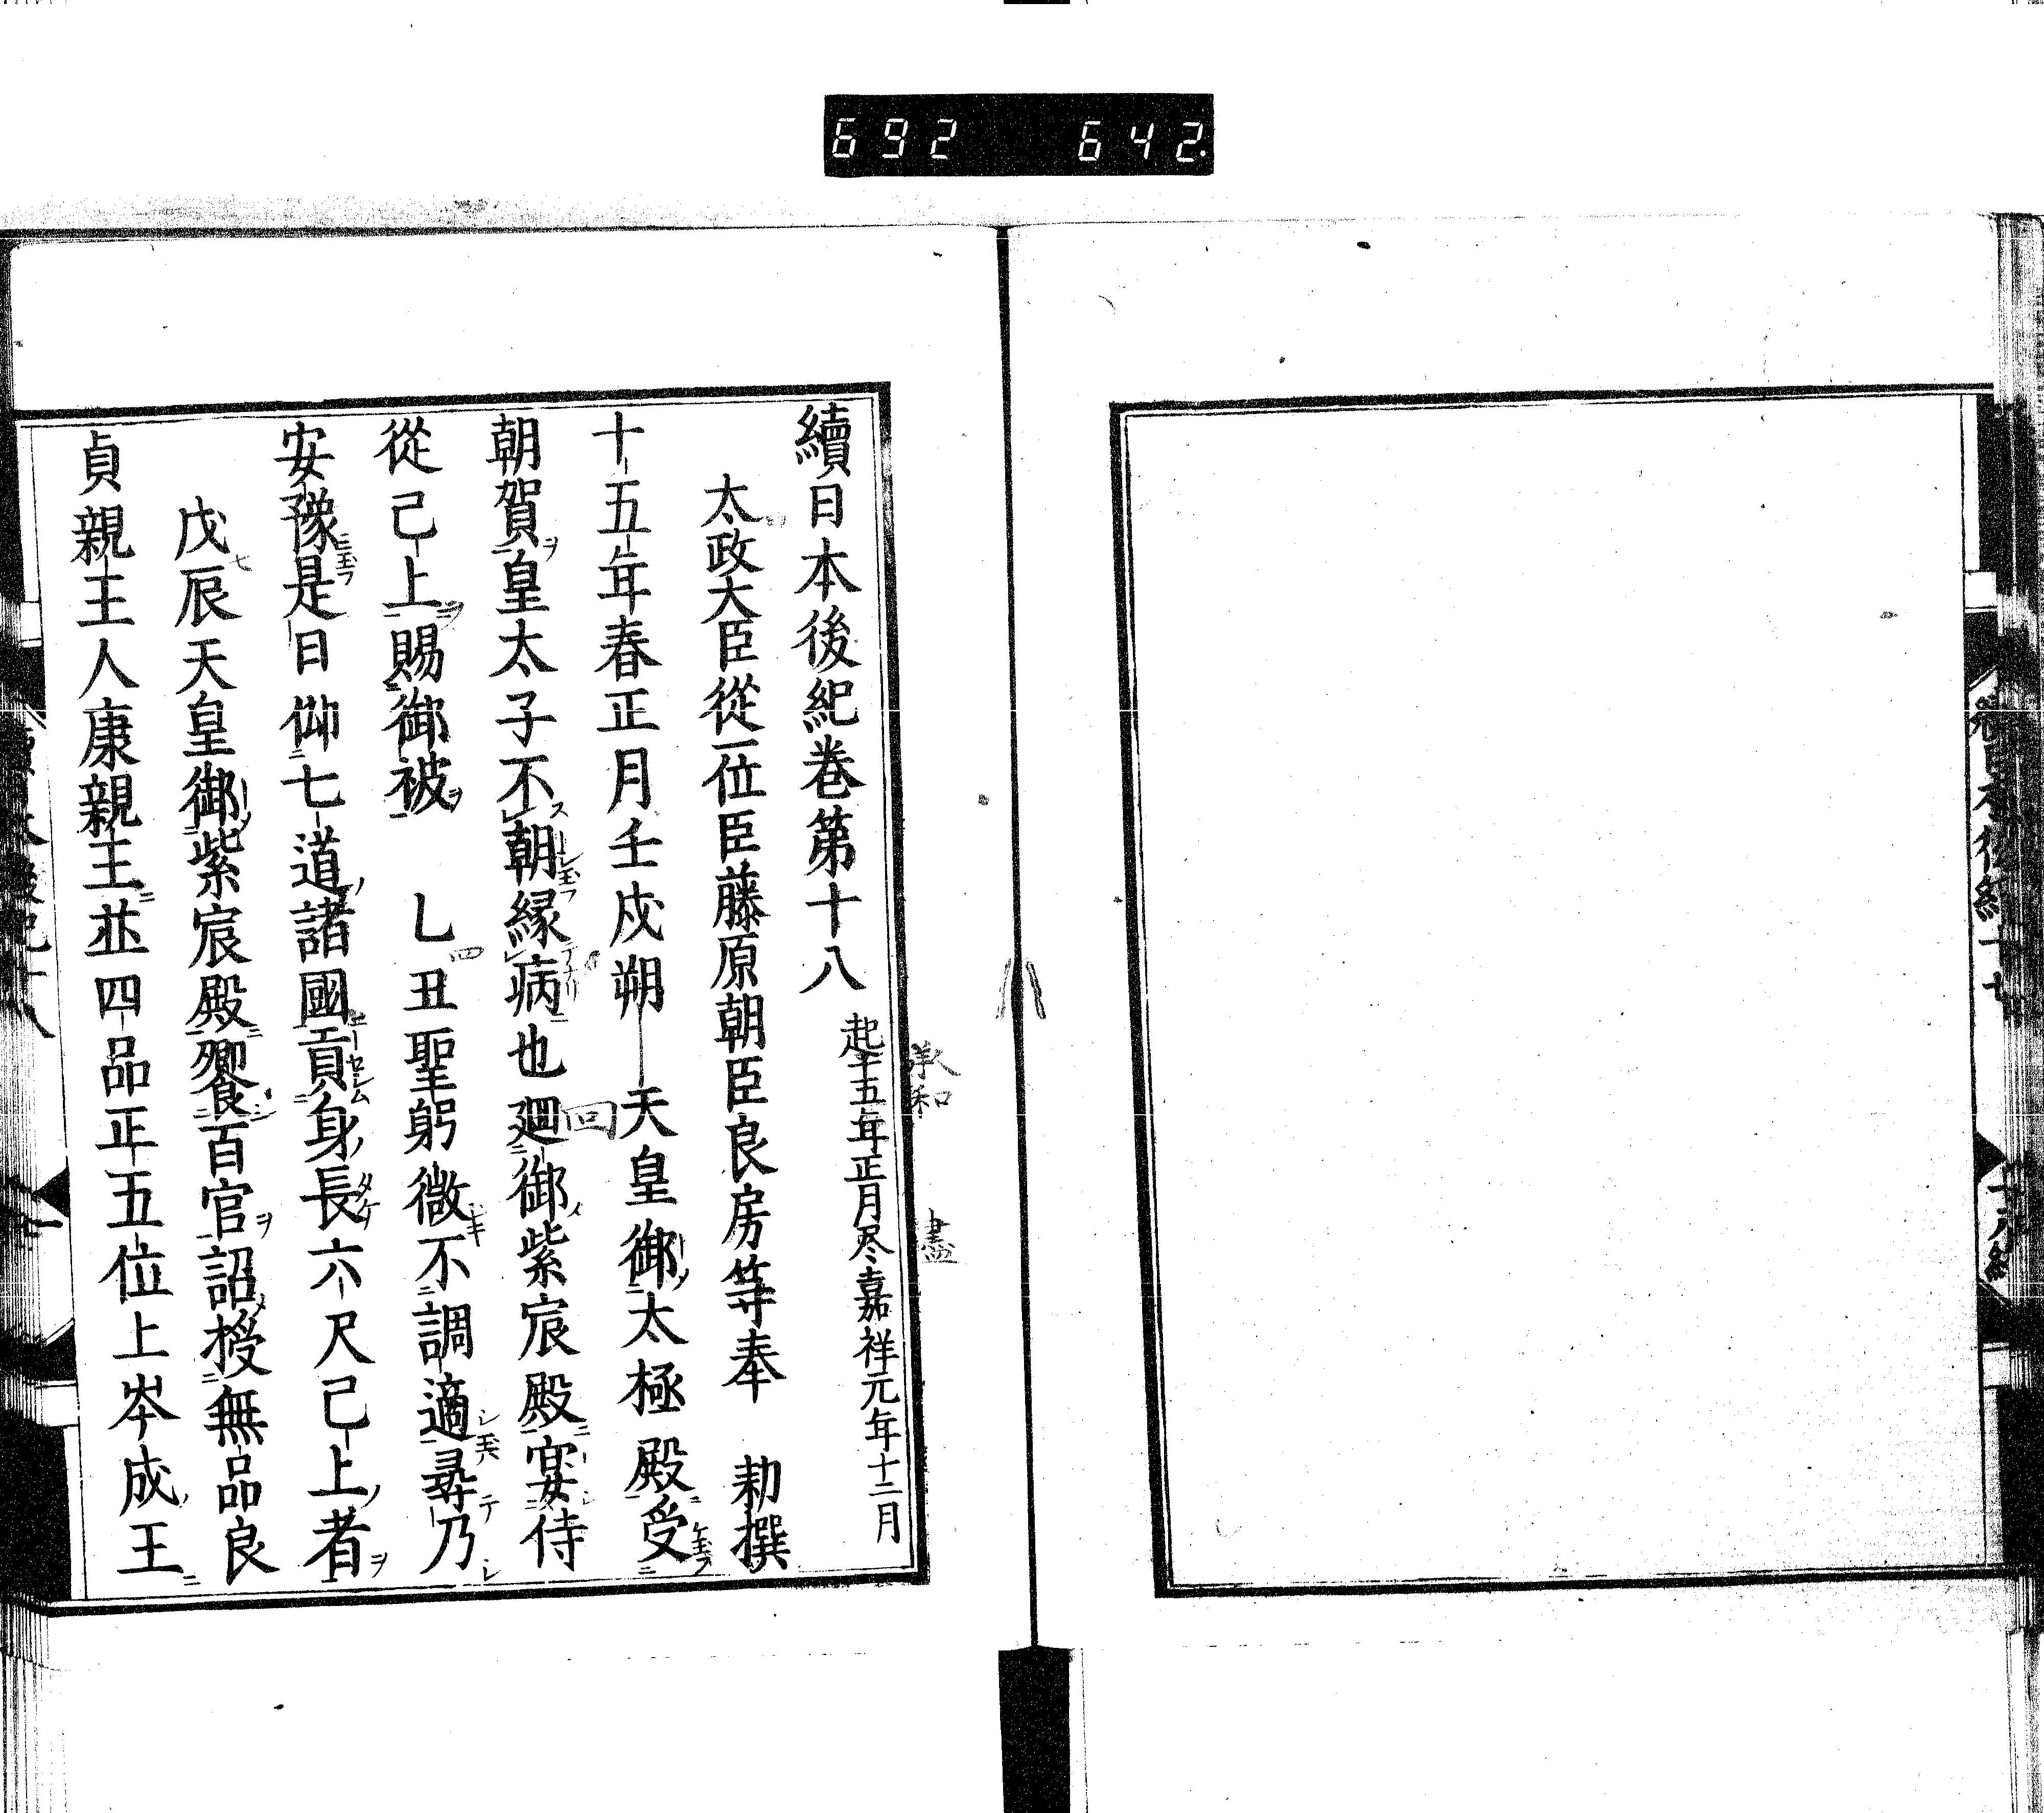 692 642.
續日本後紀卷第十八 起十五年正月尽嘉祥元年十二月
承和 盡
太政大臣從一位臣藤原朝臣良房等奉 勑撰
十五年春正月壬戌朔 天皇御太極殿受
朝賀皇太子不朝縁病也廻御紫宸殿宴侍
回
從已上賜御被 乚丑聖躬微不調適尋乃
安豫是日仰七道諸國貢身長六尺已上者
戊辰天皇御紫宸殿饗百官詔授無品良
貞親王人康親王並四品正五位上岑成王